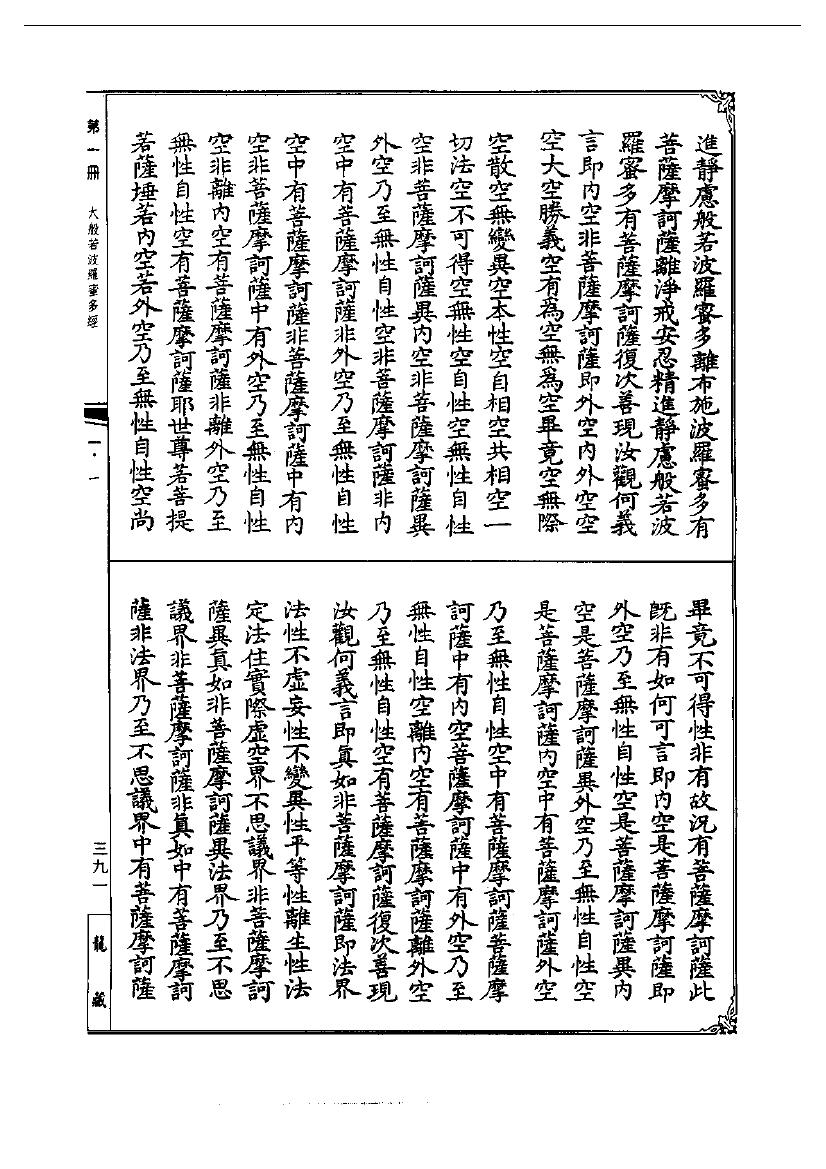 進靜慮般若波羅蜜多離布施波羅蜜多有
菩薩摩訶薩離淨戒安忍精進靜慮般若波
羅蜜多有菩薩摩訶薩復次善現汝觀何義
言即內空非菩薩摩訶薩即外空內外空空
空大空勝義空有為空無為空畢竟空無際
空散空無變異空本性空自相空共相空一
切法空不可得空無性空自性空無性自性
空非菩薩摩訶薩異內空非菩薩摩訶薩異
外空乃至無性自性空非菩薩摩訶薩非內
空中有菩薩摩訶薩非外空乃至無性自性
空中有菩薩摩訶薩非菩薩摩訶薩中有內
空非菩薩摩訶薩中有外空乃至無性自性
空非離內空有菩薩摩訶薩非離外空乃至
無性自性空有菩薩摩訶薩耶世尊若菩提
若薩埵若內空若外空乃至無性自性空尚
畢竟不可得性非有故況有菩薩摩訶薩此
既非有如何可言即內空是菩薩摩訶薩即
外空乃至無性自性空是菩薩摩訶薩異內
空是菩薩摩訶薩異外空乃至無性自性空
是菩薩摩訶薩內空中有菩薩摩訶薩外空
乃至無性自性空中有菩薩摩訶薩菩薩摩
訶薩中有內空菩薩摩訶薩中有外空乃至
無性自性空離內空有菩薩摩訶薩離外空
乃至無性自性空有菩薩摩訶薩復次善現
汝觀何義言即真如非菩薩摩訶薩即法界
法性不虛妄性不變異性平等性離生性法
定法住實際虛空界不思議界非菩薩摩訶
薩異真如非菩薩摩訶薩異法界乃至不思
議界非菩薩摩訶薩非真如中有菩薩摩訶
薩非法界乃至不思議界中有菩薩摩訶薩
第一冊 大般若波羅蜜多經
一·一
三九一
龍藏